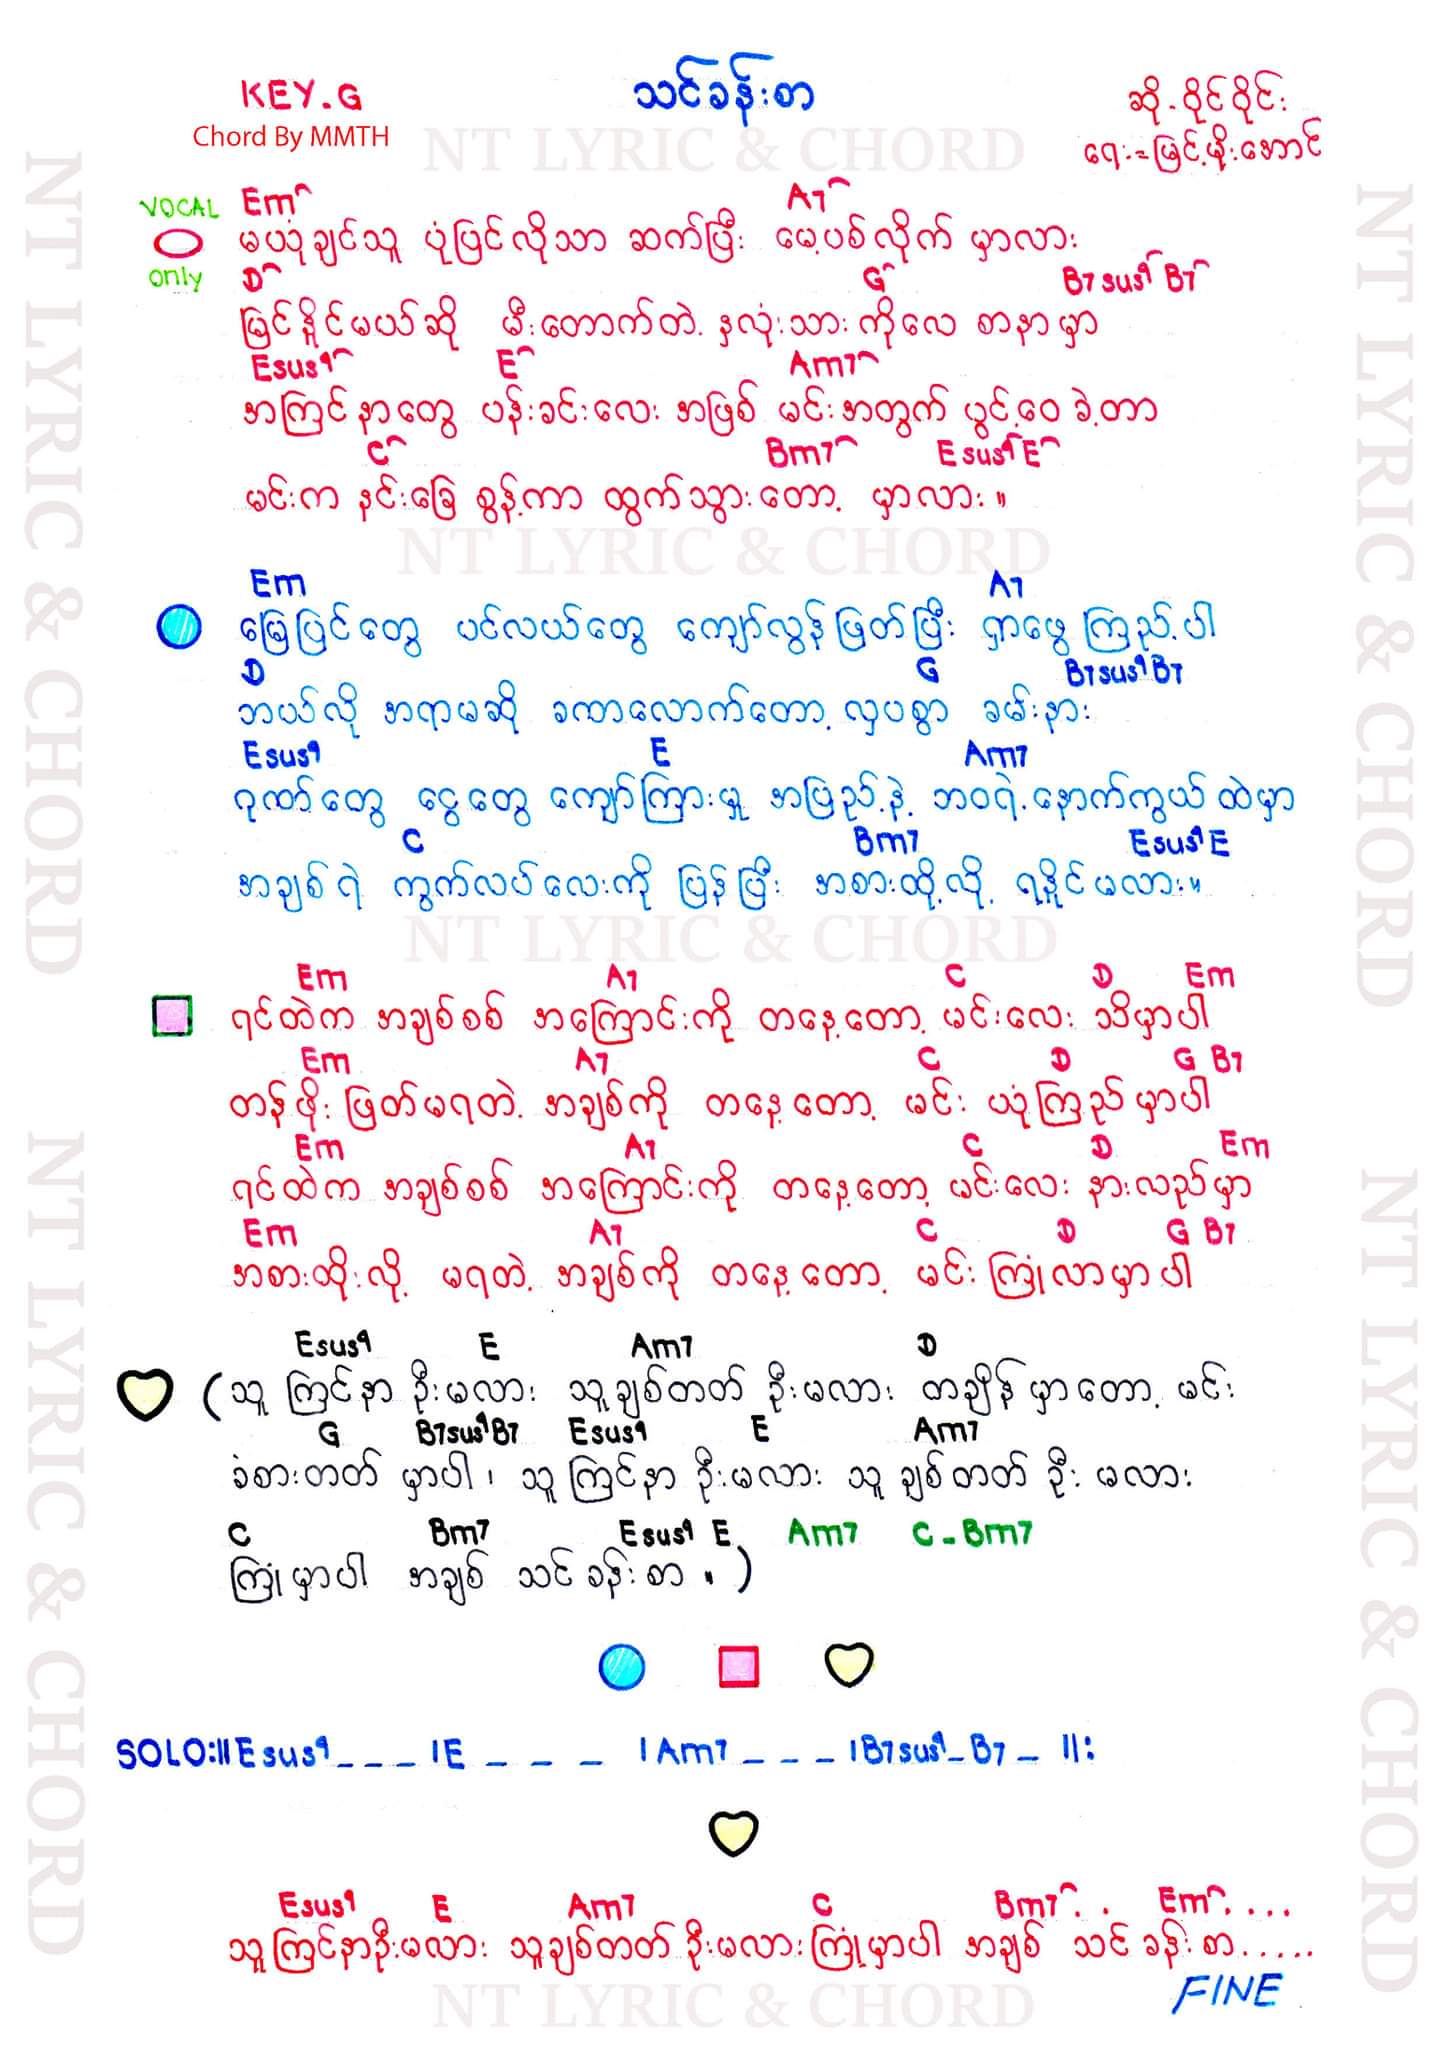 KEY.G
Chord By MMTH
သင်ခန်းစာ
ဆို - ဝိုင်ဝိုင်း
ရေး = မြင့်မိုးအောင်
NT LYRIC & CHORD
VOCAL only
Em A7
မယုံချင်သူ ပုံပြင်လိုသာ ဆက်ပြီး မေ့ပစ်လိုက် မှာလား
D G B7sus4 B7
မြင်နိုင်မယ်ဆို မီးတောက်တဲ့ နှလုံးသားကိုလေ စာနာမှာ
Esus4 E Am7
အကြင်နာတွေ ပန်းခင်းလေး အဖြစ် မင်းအတွက် ပွင့်ဝေ ခဲ့တာ
C Bm7 Esus4 E
မင်းက နင်းခြေ စွန့်ကာ ထွက်သွားတော့ မှာလား။
NT LYRIC & CHORD
Em A7
မြေပြင်တွေ ပင်လယ်တွေ ကျော်လွန်ဖြတ်ပြီး ရှာဖွေ ကြည့်ပါ
D G B7sus4 B7
ဘယ်လို အရာမဆို ခဏလောက်တော့ လှပစွာ ခမ်းနား
Esus4 E Am7
ဂုဏ်တွေ ငွေတွေ ကျော်ကြားမှု အပြည့်နဲ့ ဘဝရဲ့နောက်ကွယ်ထဲမှာ
C Bm7 Esus4 E
အချစ်ရဲ ကွက်လပ်လေးကို ပြန်ပြီး အစားထိုးလို့ ရနိုင်မလား။
NT LYRIC & CHORD
Em A7 C D Em
ရင်ထဲက အချစ်စစ် အကြောင်းကို တနေ့တော့ မင်းလေး သိမှာပါ
Em A7 C D G B7
တန်ဖိုး ဖြတ်မရတဲ့ အချစ်ကို တနေ့တော့ မင်း ယုံကြည်မှာပါ
Em A7 C D Em
ရင်ထဲက အချစ်စစ် အကြောင်းကို တနေ့တော့ မင်းလေး နားလည်မှာ
Em A7 C D G B7
အစားထိုးလို့ မရတဲ့ အချစ်ကို တနေ့တော့ မင်း ကြုံလာမှာပါ
Esus4 E Am7 D
(သူ ကြင်နာ ဦးမလား သူချစ်တတ် ဦးမလား တချိန်မှာတော့ မင်း
G B7sus4 B7 Esus4 E Am7
ခံစားတတ် မှာပါ၊ သူ ကြင်နာ ဦးမလား သူ ချစ်တတ် ဦး မလား
C Bm7 Esus4 E Am7 C - Bm7
ကြုံမှာပါ အချစ် သင်ခန်းစာ။)
SOLO:||Esus4 _ _ _ |E _ _ _ |Am7 _ _ _ |B7sus4 _ B7 _ ||:
Esus4 E Am7 C Bm7.. Em....
သူကြင်နာဦးမလား သူချစ်တတ်ဦးမလားကြုံမှာပါ အချစ် သင်ခန်းစာ.....
FINE
NT LYRIC & CHORD
NT LYRIC & CHORD
NT LYRIC & CHORD
NT LYRIC & CHORD
NT LYRIC & CHORD